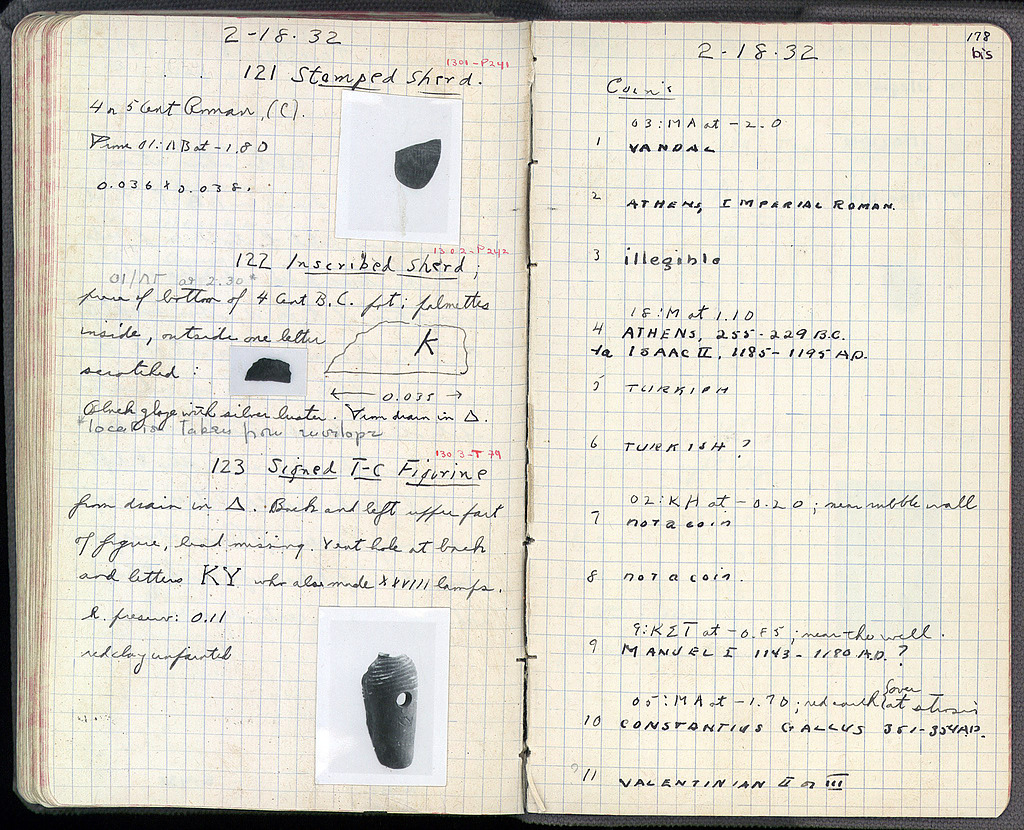 2-18-32
1301-P241
121 Stamped Sherd.
4 or 5 Cent Roman, (C).
From 01:ΛB at -1.80
0.036 x 0.038.
1302-P242
122 Inscribed Sherd;
01/ΛΓ at 2.30*
piece of bottom of 4 Cent B.C. pot; palmettes
inside, outside one letter
scratched:
K
0.035
Black glaze with silver luster. From drain in Δ.
*location taken from envelope
1303-T79
123 Signed T-C Figurine
from drain in Δ. Back and left upper part
of figure, head missing. Vent hole at back
and letters KY who also made XXVIII lamps.
h. preserv: 0.11
red clay unpainted
178
bis
2-18-32
Coins
03:MA at -2.0
1 VANDAL
2 ATHENS, IMPERIAL ROMAN.
3 illegible
18:M at 1.10
4 ATHENS, 255-229 B.C.
4a ISAAC II, 1185-1195 A.D.
5 TURKISH
6 TURKISH ?
02:KH at -0.20; near rubble wall
7 not a coin
8 not a coin.
9:KΣT at -0.85; near the well.
9 MANUEL I 1143-1180 A.D. ?
over
05:MA at -1.70; red earth at
10 CONSTANTIUS GALLUS 351-354 A.D.
11 VALENTINIAN II or III